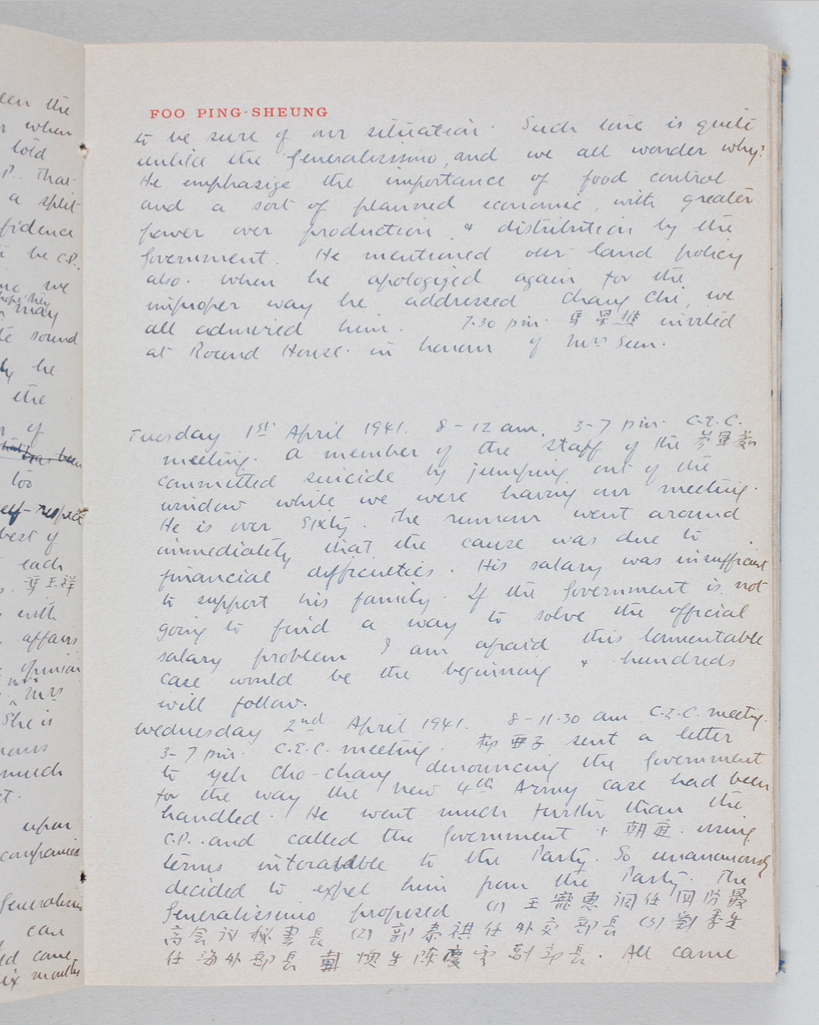 een the
when
told
P. That
a split
fidence
be C.P.
we
may
sound
he
the
of
too
self-respect
best of
each
馮玉祥
with
affairs
opinion
Mrs
She is
much
upon
companies
Generalissimo
can
ed came
six months
FOO PING-SHEUNG
to be sure of our situation. Such line is quite
unlike the Generalissimo, and we all wonder why?
He emphasize the importance of food control
and a sort of planned economic, with greater
power over production & distribution by the
Government. He mentioned our land policy
also. When he apologized again for the
improper way he addressed Chang Chi, we
all admired him. 7.30 p.m. 馬超俊 invited
at Round House in honour of Mrs Sun.
Tuesday 1st April 1941. 8-12 am, 3-7 pm. C.E.C.
meeting. A member of the staff of the 黨軍
committed suicide by jumping out of the
window while we were having our meeting.
He is over sixty. The rumour went around
immediately that the cause was due to
financial difficulties. His salary was insufficient
to support his family. If the Government is not
going to find a way to solve the official
salary problem I am afraid this lamentable
case would be the beginning & hundreds
will follow.
Wednesday 2nd April 1941. 8-11.30 am C.E.C. meeting.
3-7 pm. C.E.C. meeting. 柳亞子 sent a letter
to Yeh Cho-chang denouncing the Government
for the way the new 4th Army case had been
handled. He went much further than the
C.P. and called the Government 朝庭 using
terms intolerable to the Party. So unanimously
decided to expel him from the Party. The
Generalissimo proposed (1) 王寵惠調任國防最
高会議秘書長 (2) 郭泰祺任外交部長 (3) 劉季生
任海外部長 戴愧生陳慶雲副部長. All came